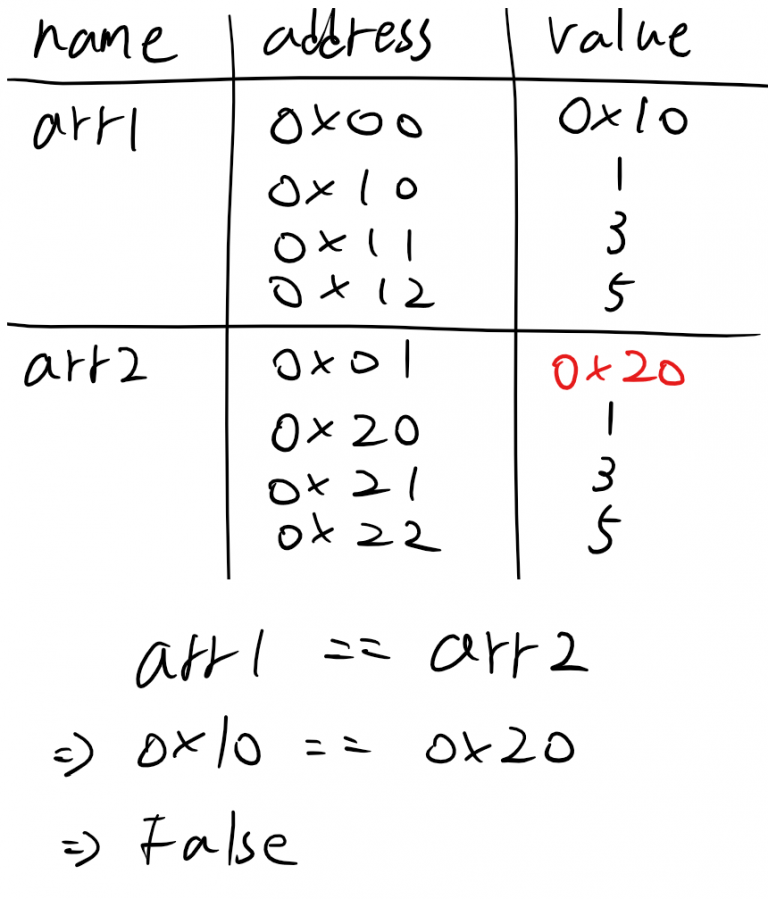 name address value
arr1 0x00 0x10
0x10 1
0x11 3
0x12 5
arr2 0x01 0x20
0x20 1
0x21 3
0x22 5
arr1 == arr2
=> 0x10 == 0x20
=> False